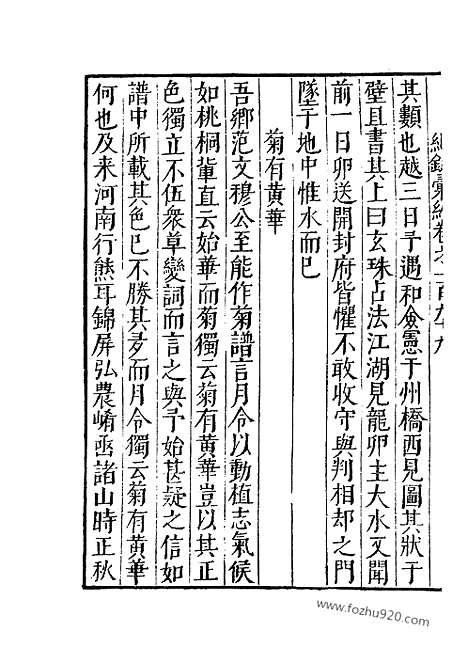 紀錄彙編卷之一百九十九
其類也越三日予遇和僉憲于州橋西見圖其狀于
壁且書其上曰玄珠占法江湖見龍卵主大水又聞
前一日卵送開封府皆懼不敢收守與判相却之門
墜于地中惟水而已
菊有黃華
吾鄉范文穆公至能作菊譜言月令以動植志氣候
如桃桐軰直云始華而菊獨云菊有黃華豈以其正
色獨立不伍衆草變詞而言之與予始甚疑之信如
譜中所載其色已不勝其多而月令獨云菊有黃華
何也及来河南行熊耳錦屏弘農崤函諸山時正秋
www.fozhu920.com